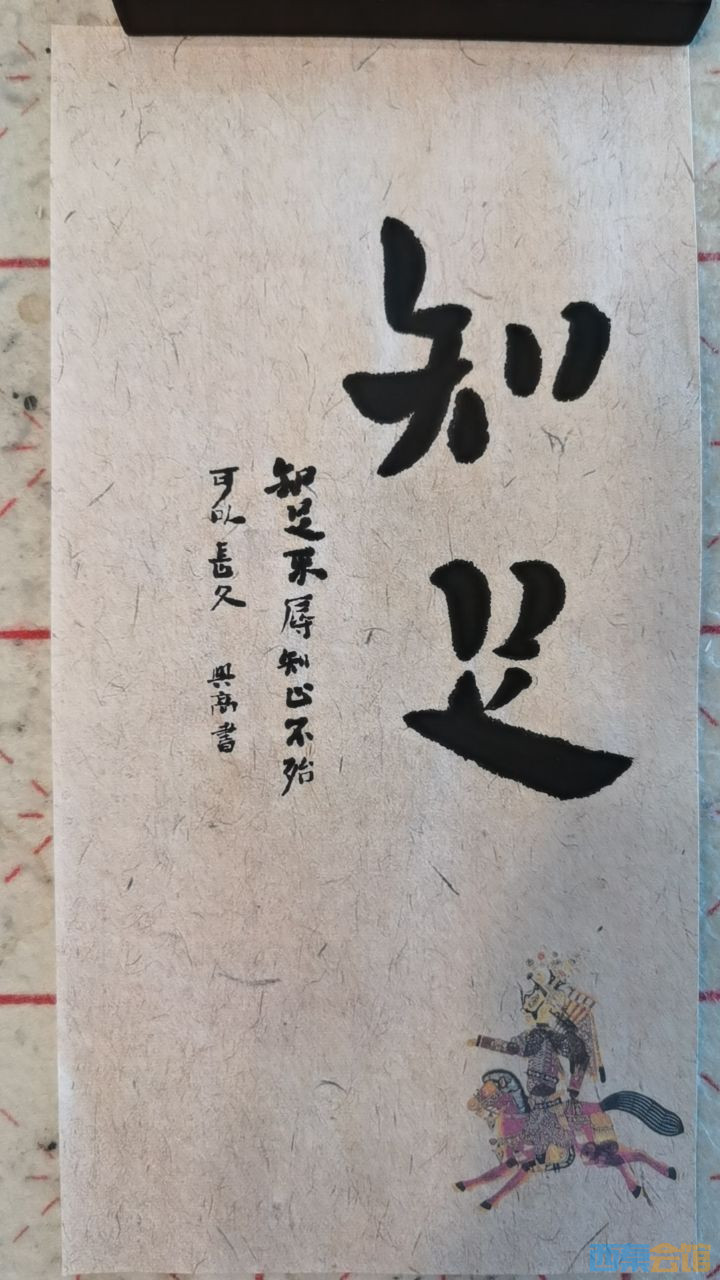 知足
知足不辱知止不殆
可以長久 興高書